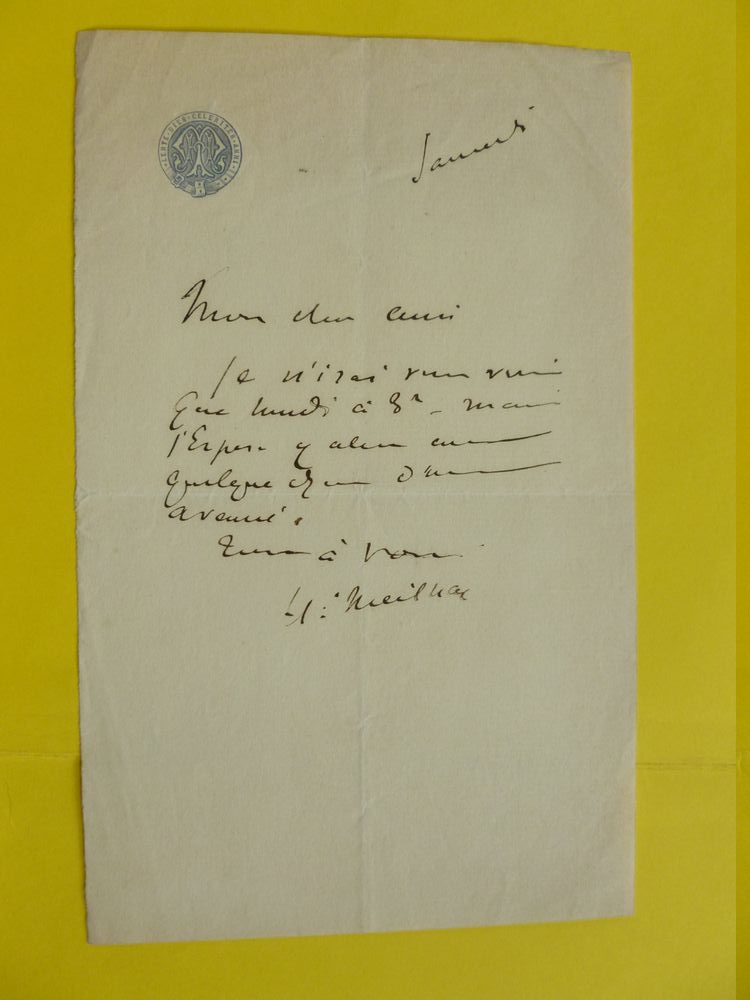 LENTE DIES CELERITER ANNI
Samedi
Mon cher ami
Je n'irai vous voir
que lundi à 3h - mais
j'espère y aller avec
quelque chose d'
avancé.
Tout à vous
H: Meilhac